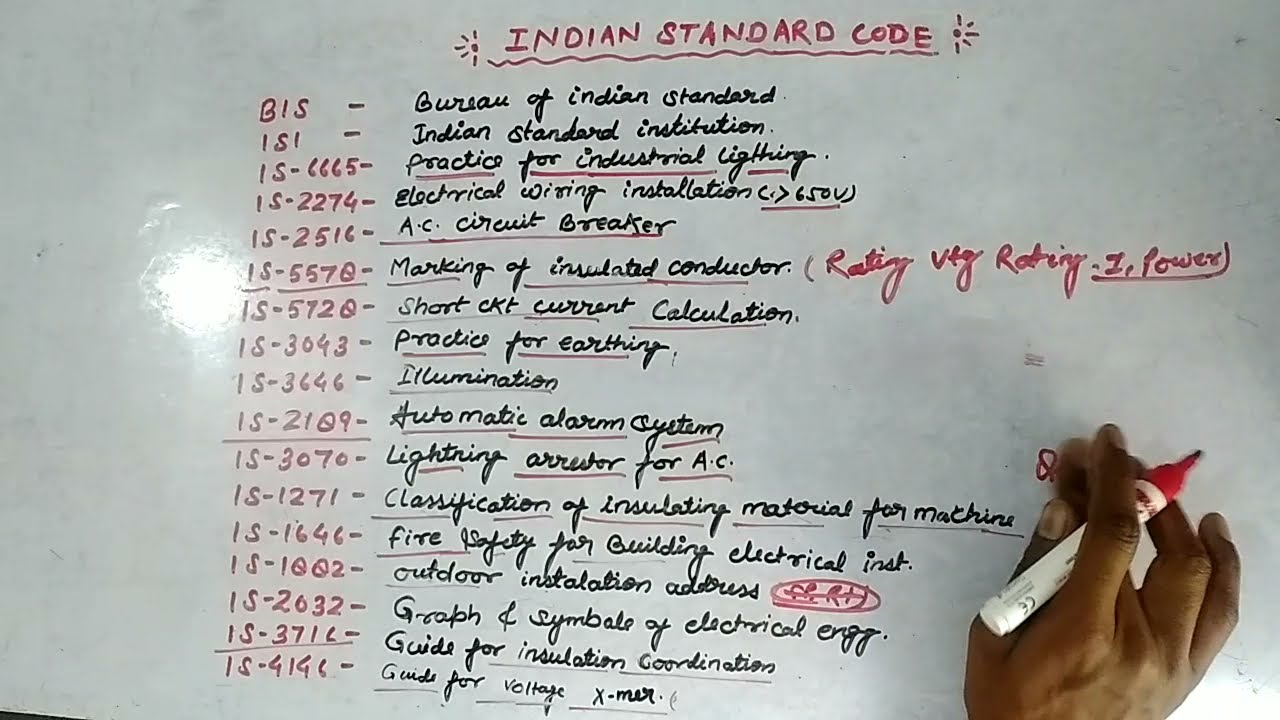 INDIAN STANDARD CODE
BIS - Bureau of indian standard.
ISI - Indian standard institution.
IS-6665- Practice for industrial Ligthing.
IS-2274- Electrical wiring installation (>650V)
IS-2516- A.C. circuit Breaker
IS-5578- Marking of insulated conductor. (Rating Vtg Rating. I, Power)
IS-5728- Short ckt current Calculation.
IS-3043- Practice for earthing,
IS-3646- Illumination
IS-2189- Automatic alarm system
IS-3070- Lightning arrestor for A.C.
IS-1271- Classification of insulating material for machine
IS-1646- Fire Safety for Building electrical inst.
IS-1882- outdoor instalation address
IS-2032- Graph & symbale of electrical engg.
IS-3716- Guide for insulation Coordination
IS-4146- Guide for voltage X-mer.